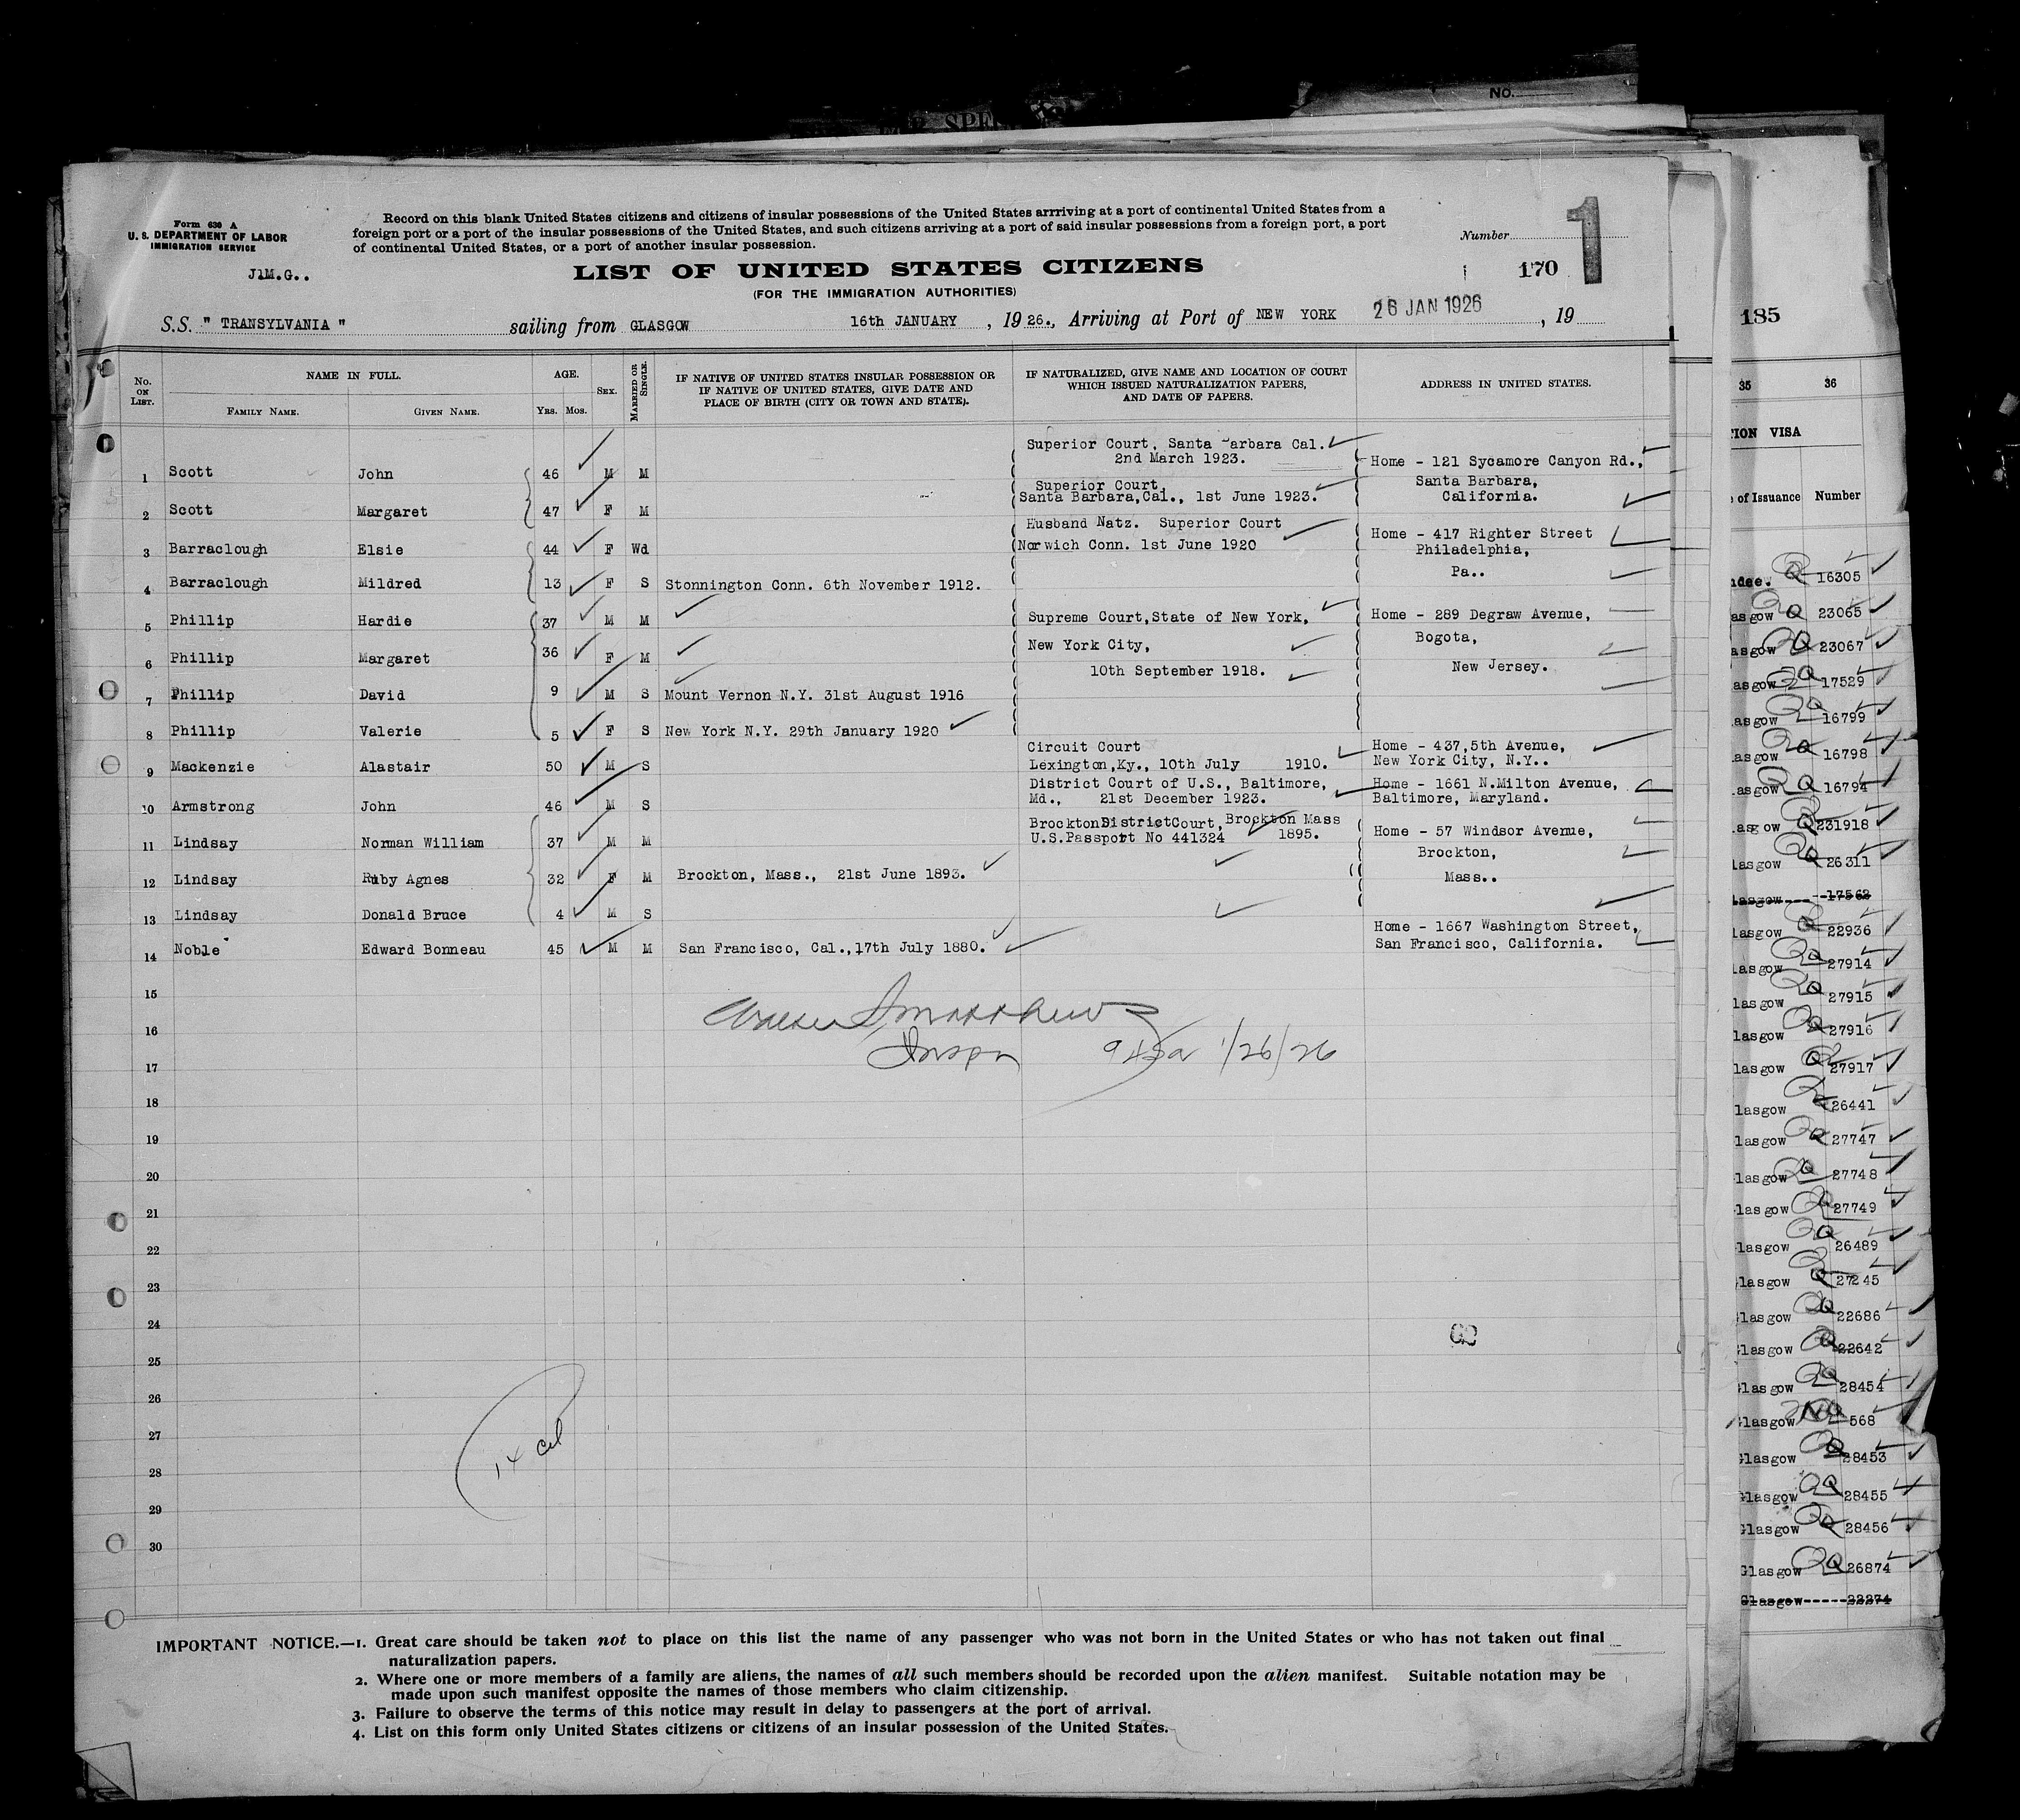 NO.
Form 630 A
U. S. DEPARTMENT OF LABOR
IMMIGRATION SERVICE
J1M.G..
Record on this blank United States citizens and citizens of insular possessions of the United States arrriving at a port of continental United States from a
foreign port or a port of the insular possessions of the United States, and such citizens arriving at a port of said insular possessions from a foreign port, a port
of continental United States, or a port of another insular possession.
Number
1
LIST OF UNITED STATES CITIZENS
170
(FOR THE IMMIGRATION AUTHORITIES)
S.S. " TRANSYLVANIA " sailing from GLASGOW 16th JANUARY , 19 26., Arriving at Port of NEW YORK 26 JAN 1926 , 19
No. ON LIST. NAME IN FULL. AGE. SEX. MARRIED OR SINGLE. IF NATIVE OF UNITED STATES INSULAR POSSESSION OR IF NATIVE OF UNITED STATES, GIVE DATE AND PLACE OF BIRTH (CITY OR TOWN AND STATE). IF NATURALIZED, GIVE NAME AND LOCATION OF COURT WHICH ISSUED NATURALIZATION PAPERS, AND DATE OF PAPERS. ADDRESS IN UNITED STATES.
FAMILY NAME. GIVEN NAME. YRS. MOS.
Superior Court, Santa Barbara Cal.
2nd March 1923.
1 Scott John 46 M M Home - 121 Sycamore Canyon Rd.,
Superior Court, Santa Barbara,
Santa Barbara,Cal., 1st June 1923. California.
2 Scott Margaret 47 F M
Husband Natz. Superior Court
3 Barraclough Elsie 44 F Wd Norwich Conn. 1st June 1920 Home - 417 Righter Street
Philadelphia,
Pa..
4 Barraclough Mildred 13 F S Stonnington Conn. 6th November 1912.
5 Phillip Hardie 37 M M Supreme Court,State of New York, Home - 289 Degraw Avenue,
New York City, Bogota,
6 Phillip Margaret 36 F M 10th September 1918. New Jersey.
7 Phillip David 9 M S Mount Vernon N.Y. 31st August 1916
8 Phillip Valerie 5 F S New York N.Y. 29th January 1920
Circuit Court Home - 437,5th Avenue,
9 Mackenzie Alastair 50 M S Lexington,Ky., 10th July 1910. New York City, N.Y..
District Court of U.S., Baltimore, Home - 1661 N.Milton Avenue,
10 Armstrong John 46 M S Md., 21st December 1923. Baltimore, Maryland.
Brockton District Court, Brockton Mass
11 Lindsay Norman William 37 M M U.S.Passport No 441324 1895. Home - 57 Windsor Avenue,
Brockton,
12 Lindsay Ruby Agnes 32 F M Brockton, Mass., 21st June 1893. Mass..
13 Lindsay Donald Bruce 4 M S
Home - 1667 Washington Street,
14 Noble Edward Bonneau 45 M M San Francisco, Cal.,17th July 1880. San Francisco, California.
15
16
1/26/26
17
18
19
20
21
22
23
24
25
26
27
28
29
30
IMPORTANT NOTICE.—1. Great care should be taken not to place on this list the name of any passenger who was not born in the United States or who has not taken out final
naturalization papers.
2. Where one or more members of a family are aliens, the names of all such members should be recorded upon the alien manifest. Suitable notation may be
made upon such manifest opposite the names of those members who claim citizenship.
3. Failure to observe the terms of this notice may result in delay to passengers at the port of arrival.
4. List on this form only United States citizens or citizens of an insular possession of the United States.
185
35 36
VISA
of Issuance Number
16305
23065
23067
17529
16799
16798
16794
231918
26311
17562
22936
27914
27915
27916
27917
26441
27747
27748
27749
26489
27245
22686
22642
28454
568
28453
28455
28456
Glasgow 26874
Glasgow 22274